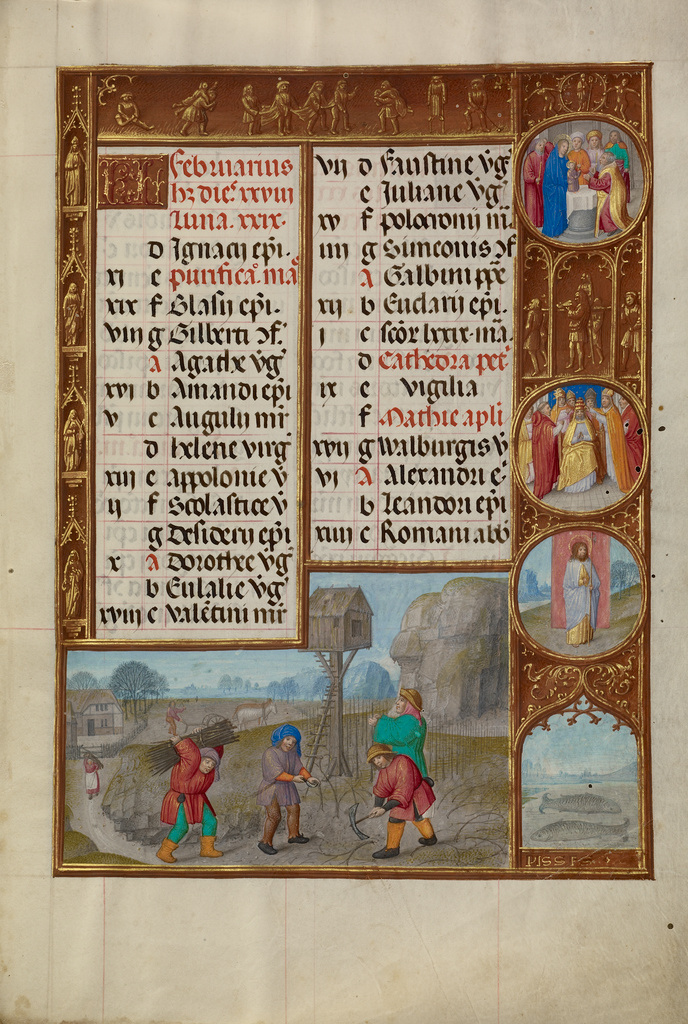 KL Februarius
hꝫ dieˢ xxviii
Luna. xxix.
d Ignacij ep̄i.
xi e purifica. ma
xix f Blasij ep̄i.
viii g Gilberti ɔf.
A Agathe v̄g
xvi b Amandi ep̄i
v c Augulij mr̄
d helene virg
xiii e appolonie v̄
ii f Scolastice v̄
g Desiderij ep̄i
x A Dorothee v̄g
b Eulalie v̄g
xviii c valētini mr̄
vii d Faustine v̄g
e Juliane v̄g
xv f polocronij m
iiii g Simeonis ɔf
A Galbini
xii b Eucларii ep̄i.
i c scōr lxxix. ma
d Cathedra pet
ix e vigilia
f Mathie apli
xvii g walburgis v̄
vi A Alexandri e
b Leandori ep̄i
xiiii c Romani abb
PISSES